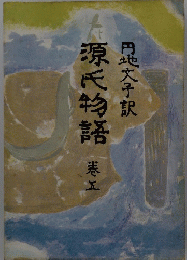 円地文子訳
源氏物語
巻五